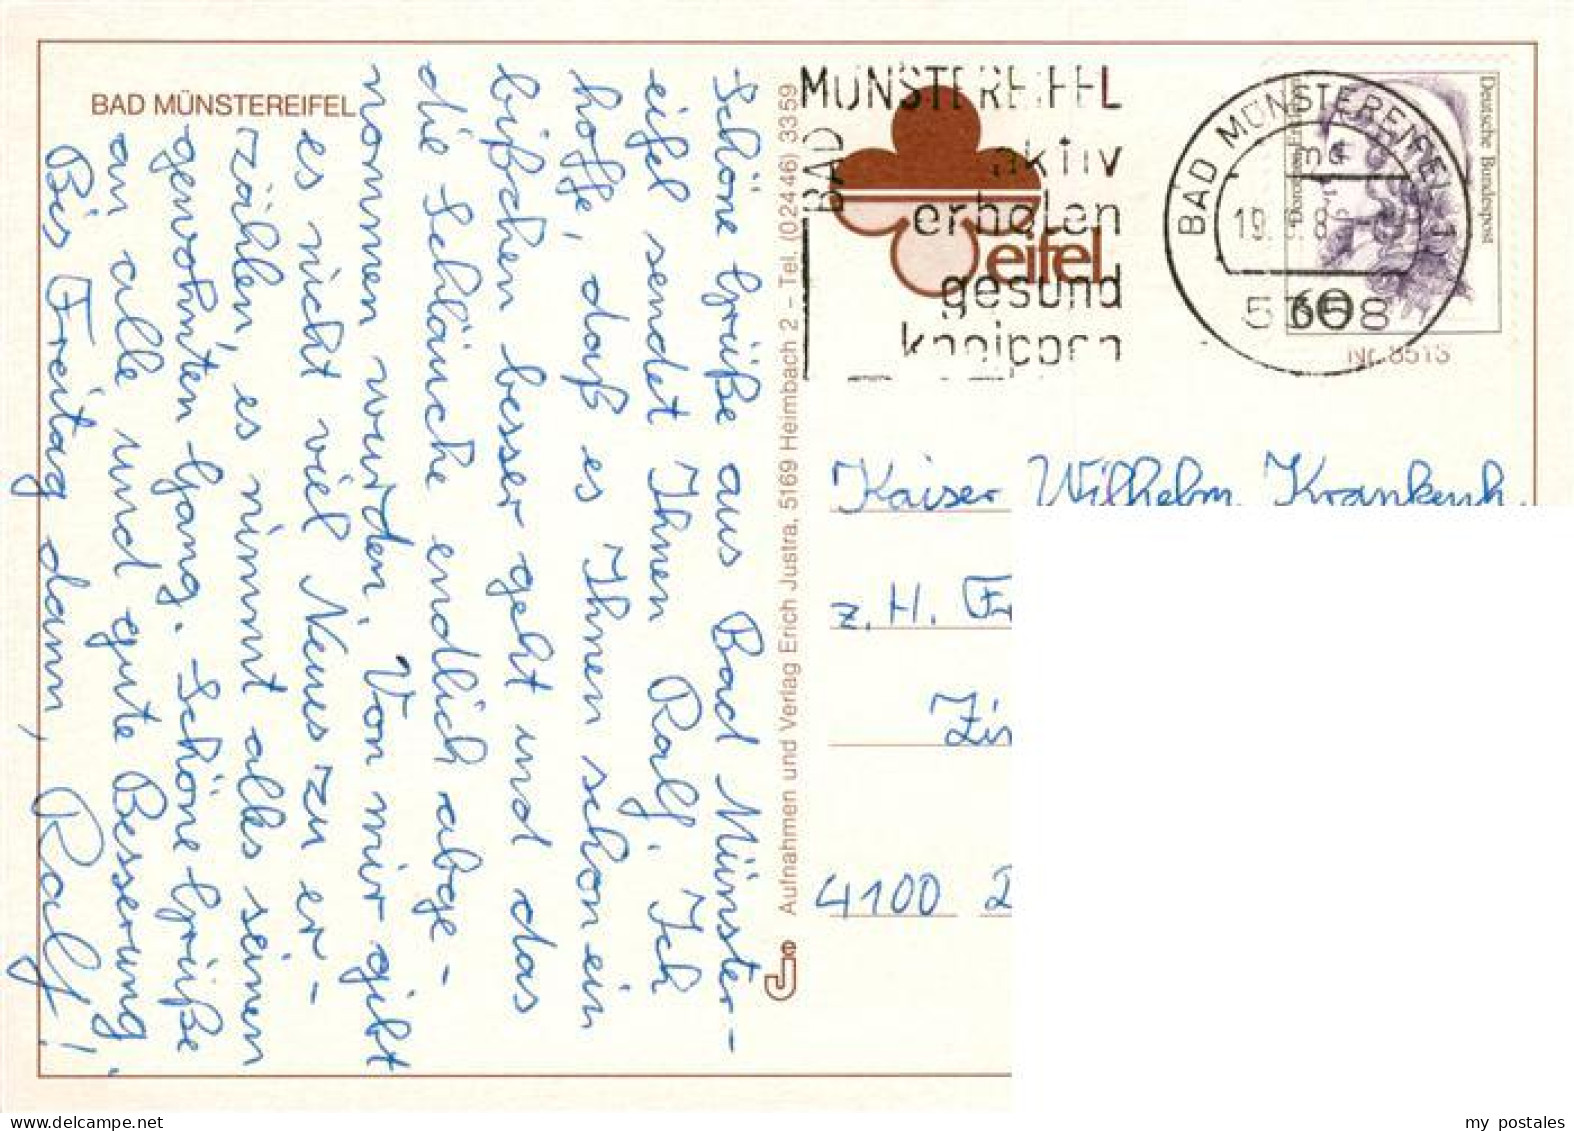 BAD MÜNSTEREIFEL
Schöne Grüße aus Bad Münster-
eifel sendet Ihnen Ralf. Ich
hoffe, daß es Ihnen schon ein
bißchen besser geht und das
die Schläuche endlich abge-
nommen wurden. Von mir gibt
es nicht viel Neues zu er-
zählen, es nimmt alles seinen
gewohnten Gang. Schöne Grüße
an alle und gute Besserung.
Bis Freitag dann, Ralf!
Aufnahmen und Verlag Erich Justra, 5169 Heimbach 2 – Tel. (02446) 3359
BAD
MÜNSTEREIFEL
aktiv
erholen
gesund
kneippen
eifel
BAD MÜNSTEREIFEL 1
ma
5358
Deutsche Bundespost
60
Nr. 8515
Kaiser Wilhelm Krankenh.
z. H.
4100
my postales